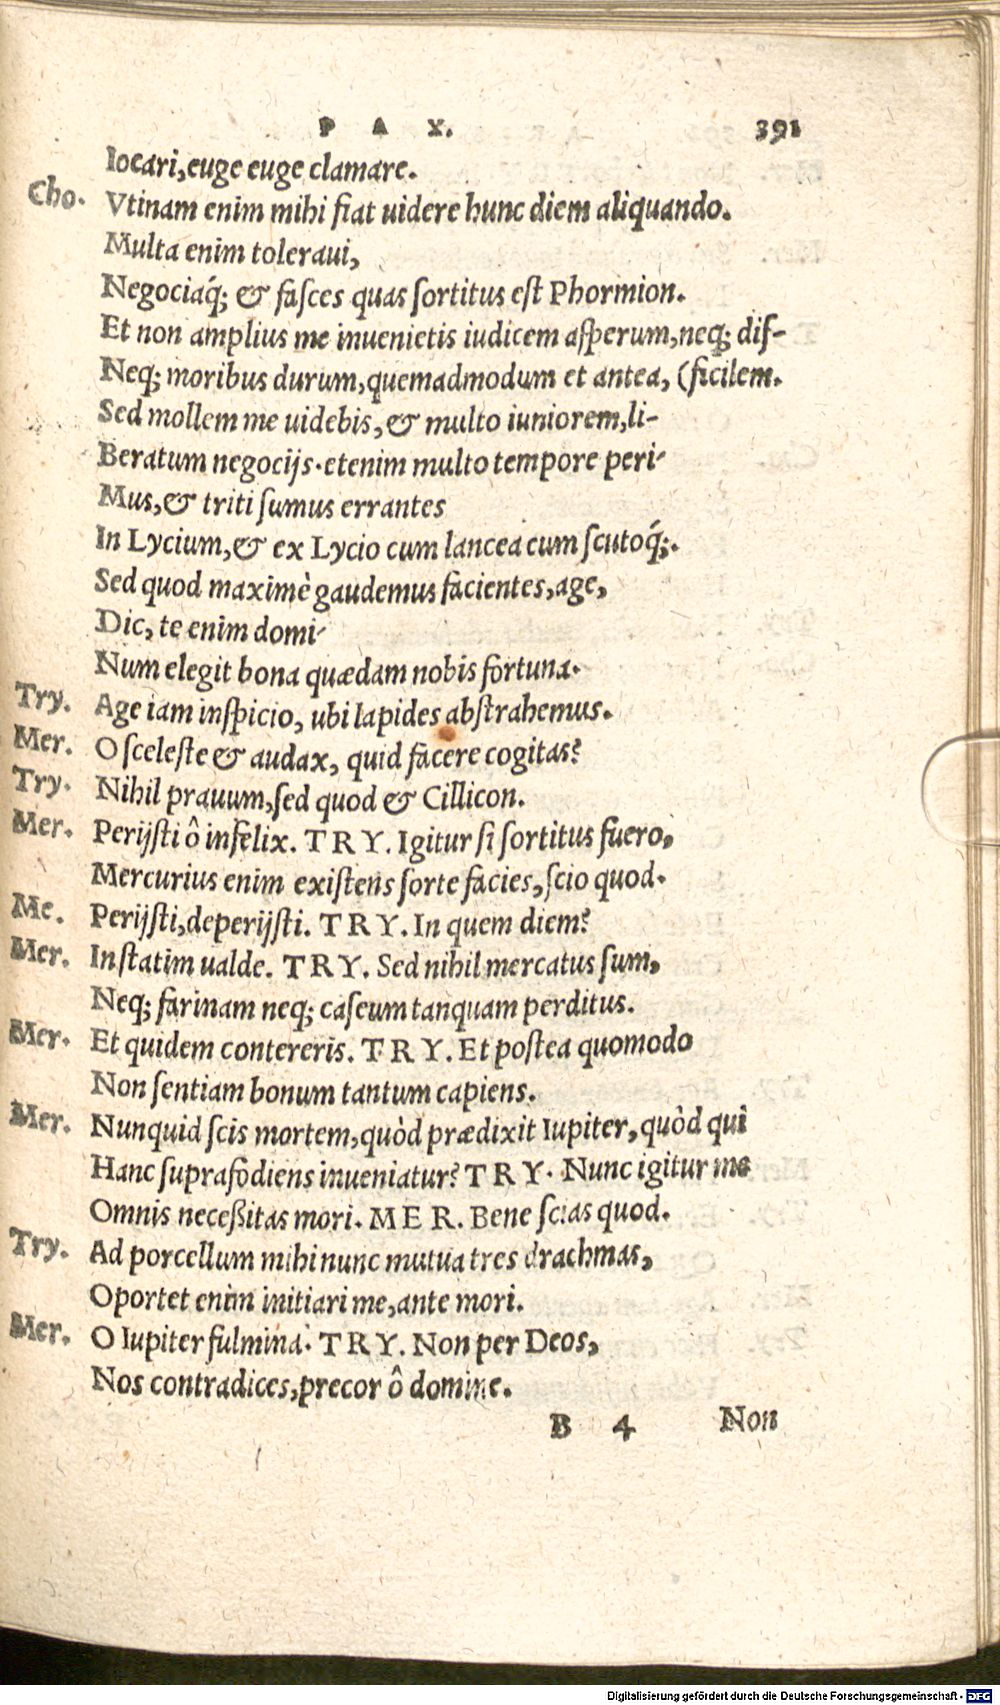 P A X. 391
Iocari, euge euge clamare.
Cho. Vtinam enim mihi fiat uidere hunc diem aliquando.
Multa enim toleraui,
Negociaq́; & fasces quas sortitus est Phormion.
Et non amplius me inuenietis iudicem asperum, neq; dif-
Neq; moribus durum, quemadmodum et antea, (ficilem.
Sed mollem me uidebis, & multo iuniorem, li-
Beratum negocijs. etenim multo tempore peri-
Mus, & triti sumus errantes
In Lycium, & ex Lycio cum lancea cum scutoq́;.
Sed quod maximè gaudemus facientes, age,
Dic, te enim domi-
Num elegit bona quædam nobis fortuna.
Try. Age iam inspicio, ubi lapides abstrahemus.
Mer. O sceleste & audax, quid facere cogitas?
Try. Nihil prauum, sed quod & Cillicon.
Mer. Perijsti ô infelix. TRY. Igitur si sortitus fuero,
Mercurius enim existens sorte facies, scio quod.
Me. Perijsti, deperijsti. TRY. In quem diem?
Mer. In statim ualde. TRY. Sed nihil mercatus sum,
Neq; farinam neq; caseum tanquam perditus.
Mer. Et quidem contereris. TRY. Et postea quomodo
Non sentiam bonum tantum capiens.
Mer. Nunquid scis mortem, quòd prædixit Iupiter, quòd qui
Hanc suprafodiens inueniatur? TRY. Nunc igitur me
Omnis necessitas mori. MER. Bene scias quod.
Try. Ad porcellum mihi nunc mutua tres drachmas,
Oportet enim initiari me, ante mori.
Mer. O Iupiter fulmina. TRY. Non per Deos,
Nos contradices, precor ô domine.
B 4 Non
Digitalisierung gefördert durch die Deutsche Forschungsgemeinschaft - DFG